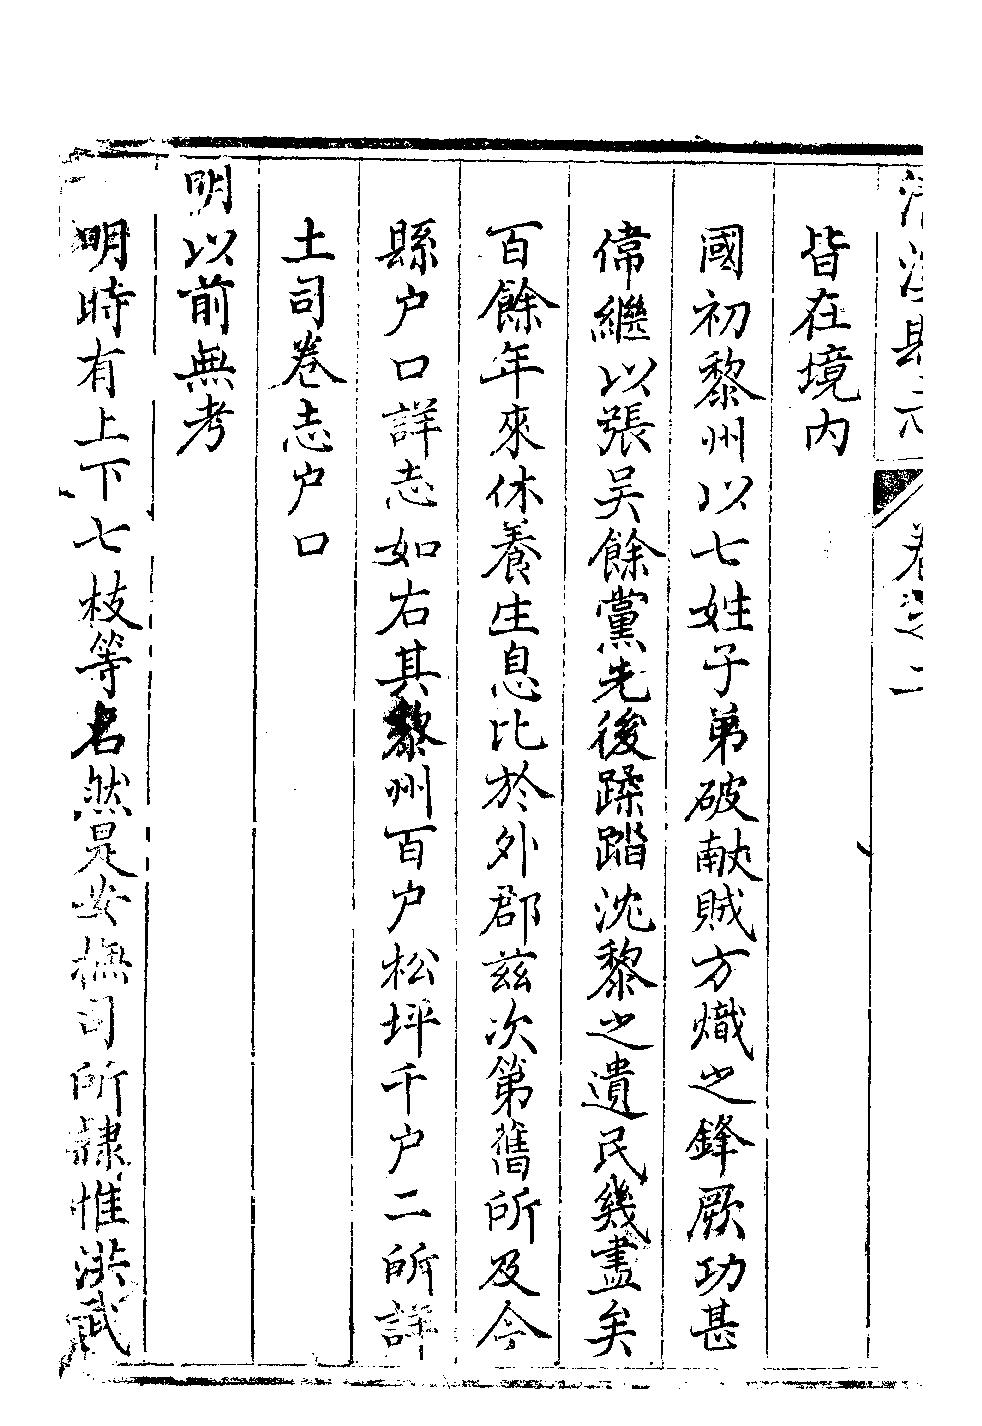 清溪縣志 卷之二
皆在境內
國初黎州以七姓子弟破献賊方熾之鋒厥功甚
偉繼以張吴餘黨先後蹂踏沈黎之遺民幾盡矣
百餘年來休養生息比於外郡兹次第舊所及今
縣户口詳志如右其黎州百户松坪千户二所詳
土司卷志户口
明以前無考
明時有上下七枝等名然是安撫司所隷惟洪武